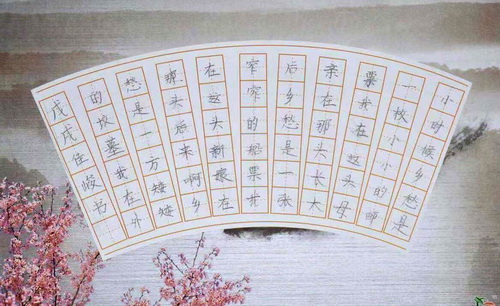 小时候乡愁是
一枚小小的邮
票我在这头母
亲在那头长大
后乡愁是一张
窄窄的船票我
在这头新娘在
那头后来啊乡
愁是一方矮矮
的坟墓我在外
戊戌书